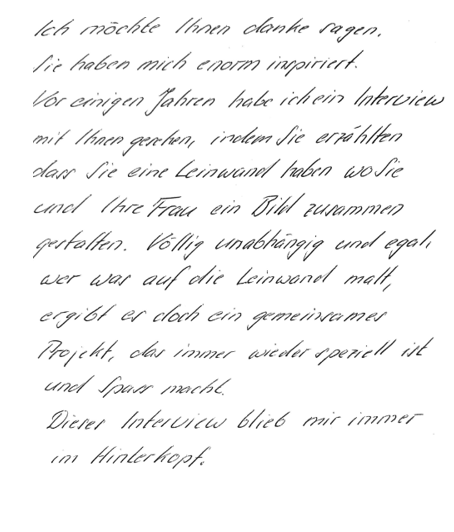 Ich möchte Ihnen danke sagen.
Sie haben mich enorm inspiriert.
Vor einigen Jahren habe ich ein Interview
mit Ihnen gesehen, indem Sie erzählten
dass Sie eine Leinwand haben wo Sie
und Ihre Frau ein Bild zusammen
gestalten. Völlig unabhängig und egal,
wer was auf die Leinwand malt,
ergibt es doch ein gemeinsames
Projekt, das immer wieder speziell ist
und Spass macht.
Dieses Interview blieb mir immer
im Hinterkopf.